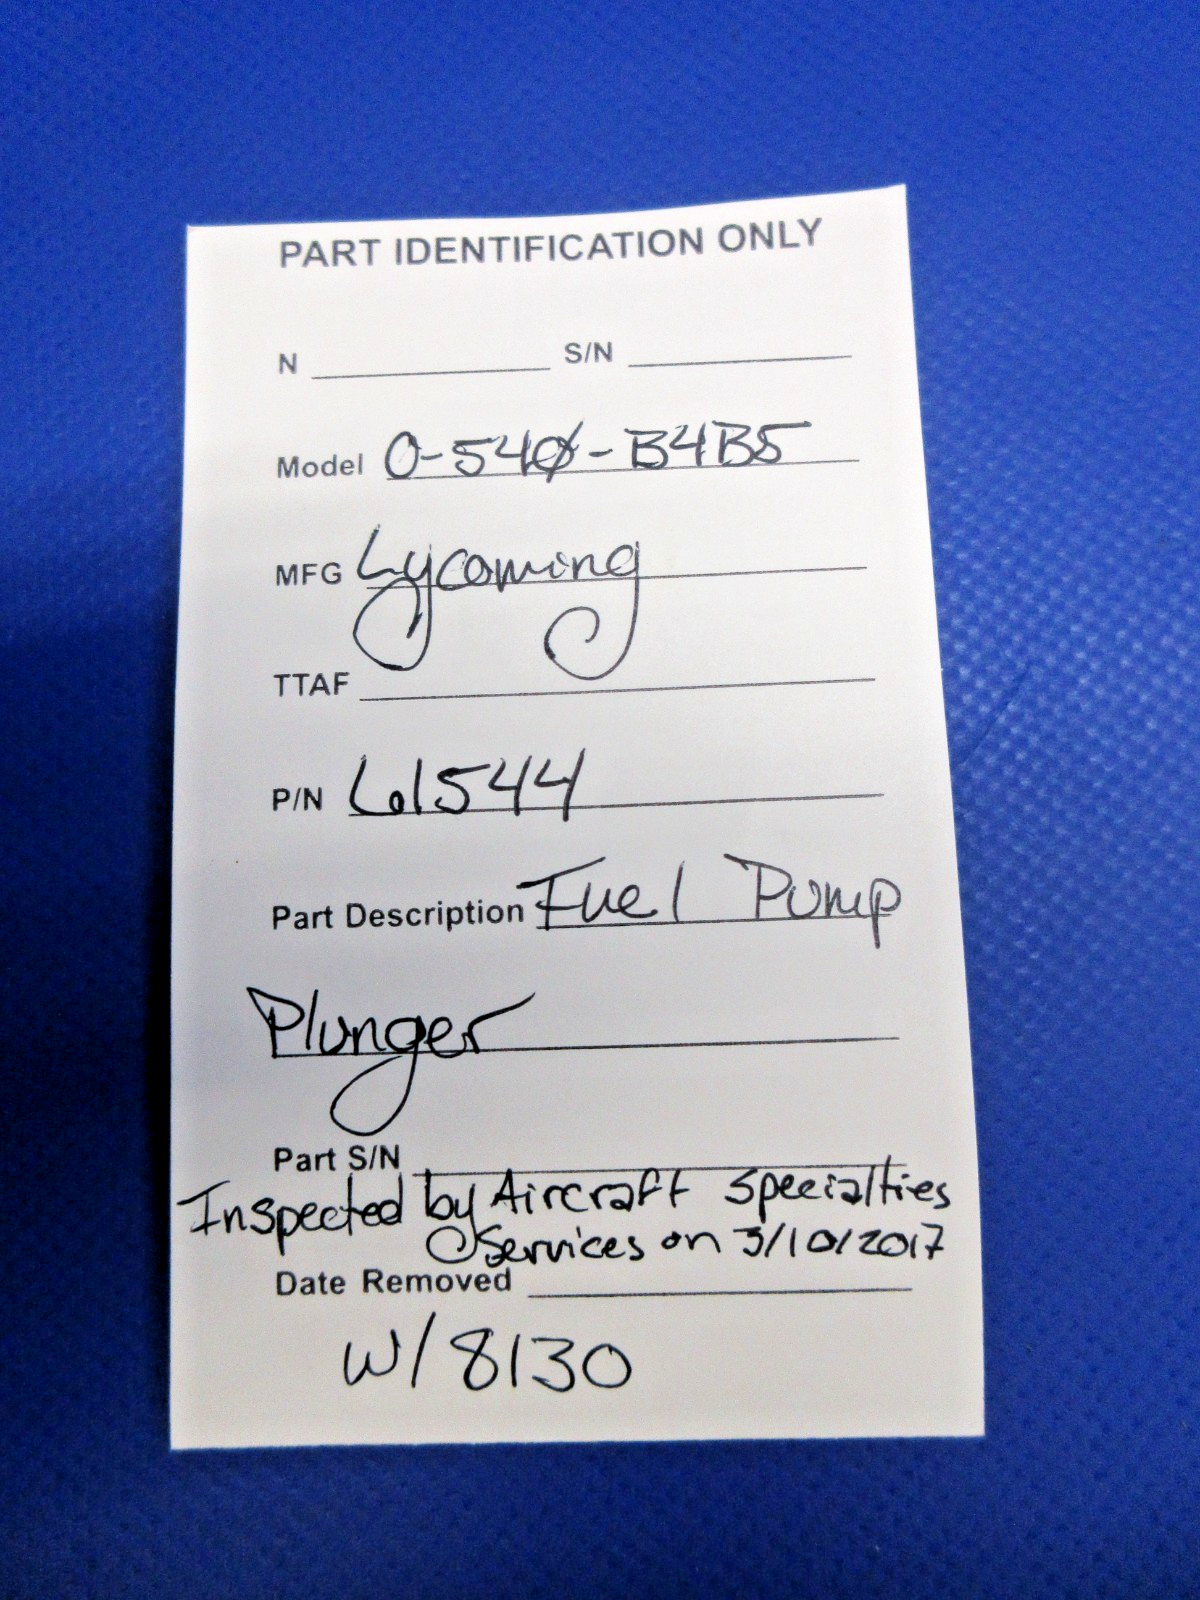 PART IDENTIFICATION ONLY
N ____________ S/N ____________
Model O-540-B4B5
MFG Lycoming
TTAF ____________
P/N 61544
Part Description Fuel Pump
Plunger
Part S/N ____________
Inspected by Aircraft Specialties
Services on 3/10/2017
Date Removed ____________
W/ 8130